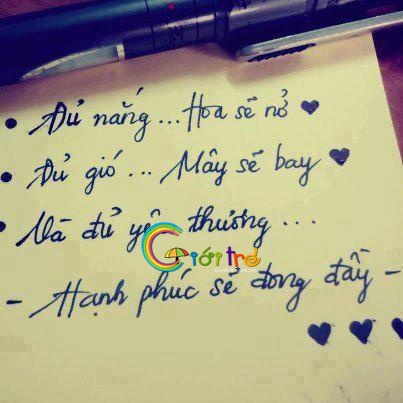 • Đủ nắng... Hoa sẽ nở ♥
• Đủ gió... Mây sẽ bay ♥
• Và đủ yêu thương...
Giới trẻ
- Hạnh phúc sẽ đong đầy -
♥ ♥ ♥